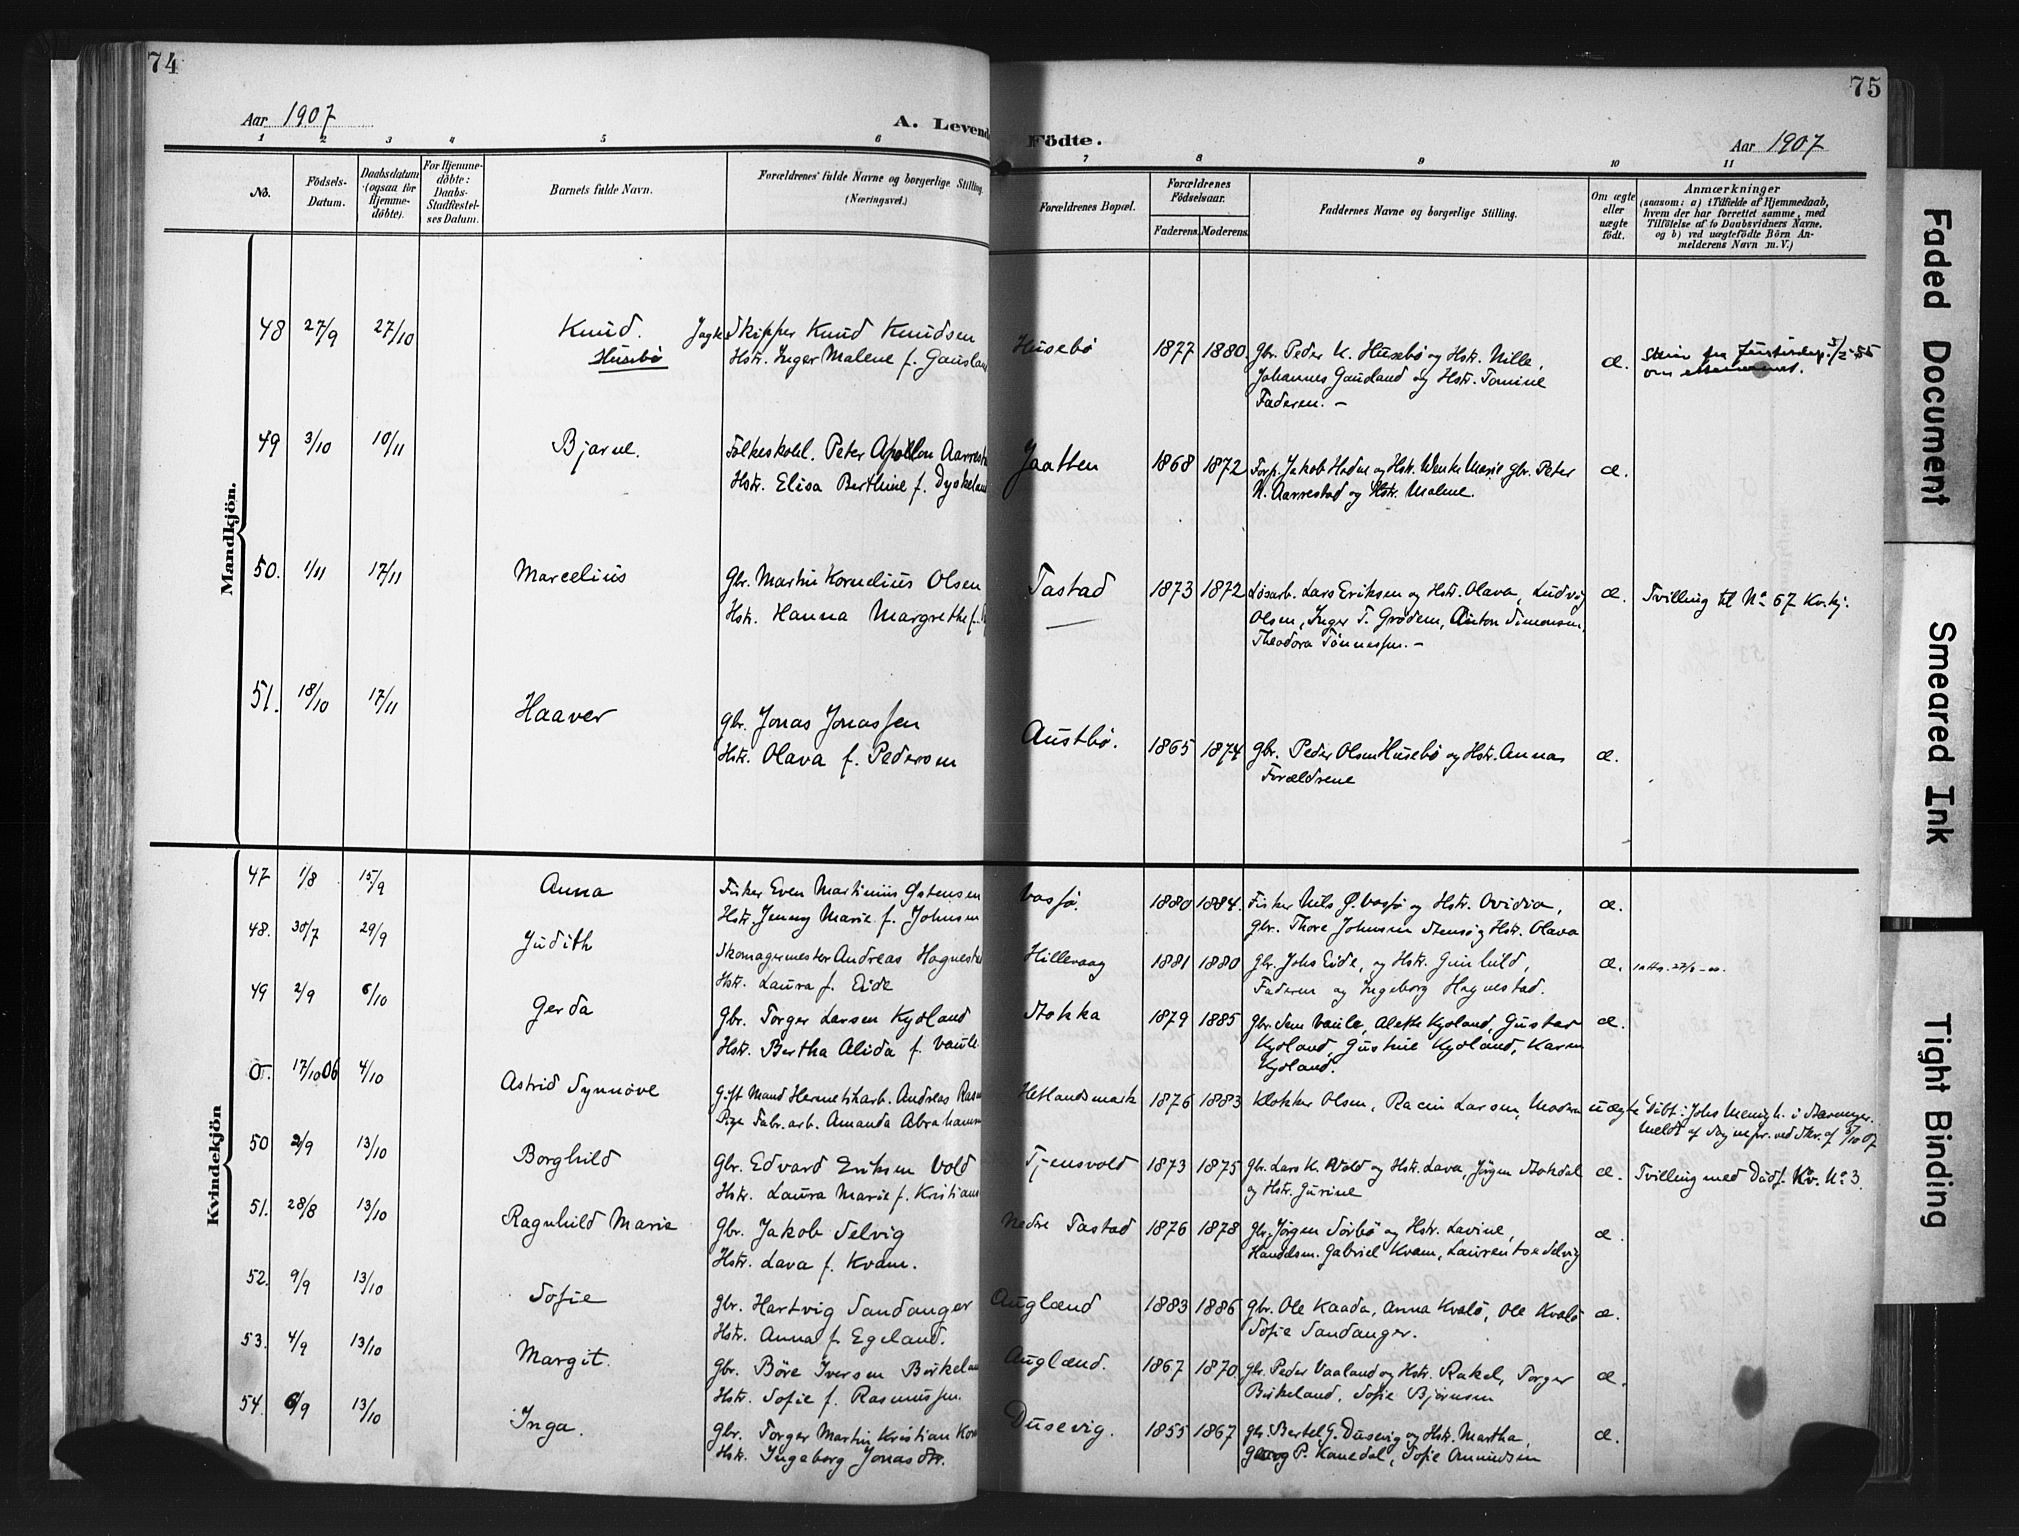 74
Aar 1907
A. Levende
1 2 3 4 5 6
No.
Födsels-
Datum.
Daabsdatum
(ogsaa for
Hjemme-
døbte).
For Hjemme-
døbte:
Daabs-
Stadfæstel-
ses Datum.
Barnets fulde Navn.
Forældrenes' fulde Navne og borgerlige Stilling.
(Næringsvei.)
Mandkjön.
48 27/9 27/10 Knud. Skipper Knud Knudsen
Husebø Hstr. Inger Malene f. Gausland
49 3/10 10/11 Bjarne. Folkeskoll. Peter Apollon Aarrest
Hstr. Elisa Berthine f. Dyskeland
50. 1/11 17/11 Marcelius Gbr. Martin Kornelius Olsen
Hstr. Hanna Margrethe f.
51. 18/10 17/11 Haaver gbr. Jonas Jonassen
Hstr. Olava f. Pedersen
Kvindekjön
47 1/8 15/9 Anna Fisker Even Martinius Østensen
Hstr. Jenny Marie f. Johnsen
48. 30/7 29/9 Judith Skomagermester Andreas Hognestad
Hstr. Laura f. Eide
49 2/9 6/10 Gerda Gbr. Torger Larsen Kydland
Hstr. Bertha Alida f. Vaule
0. 17/10 06 4/10 Astrid Synnøve Gift Mand Hermetikarb. Andreas Rasm
Pige Fabr.arb. Amanda Abrahamsen
50 2/9 13/10 Borghild Gbr. Edvard Eriksen Vold
Hstr. Laura Marie f. Kristians
51. 28/8 13/10 Ragnhild Marie Gbr. Jakob Selvig
Hstr. Lava f. Kvam.
52. 9/9 13/10 Sofie gbr. Hartvig Sandanger
Hstr. Anna f. Egeland.
53. 4/9 13/10 Margit. Gbr. Børe Iversen Birkeland
Hstr. Sofie f. Rasmussen.
54. 6/9 13/10 Inga. Gbr. Torger Martin Kristian
Hstr. Ingeborg Jonasdtr.
75
Födte.
Aar 1907
7 8 9 10 11
Forældrenes Bopæl.
Forældrenes
Födselsaar.
Faderens. Moderens.
Faddernes Navne og borgerlige Stilling.
Om ægte
eller
uægte
födt.
Anmærkninger
(saasom: a) i Tilfælde af Hjemmedaab,
hvem der har forrettet samme, med
Tilföielse af to Daabsvidners Navne,
og b) ved uægtefödte Börn An-
melderens Navn m. V.)
Husebø 1877 1880. Gbr. Peder K. Husebø og Hstr. Nille, æ.
Johannes Gausland og Hstr. Tomine
Faderen. –
Jaatten 1868 1872 Jakob Hodne og Hstr. Wenke Marie, gbr. Peter æ.
N. Aarrestad og Hstr. Malene.
Tastad 1873 1872 Løsarb. Lars Eriksen og Hstr. Olava, Ludvig æ. Tvilling til No 67 Kv.kj.
Olsen, Inger T. Grødem, Anton Simonsen,
Theodora Tønnessen. –
Austbø. 1865 1874 Gbr. Peder Olsen Husebø og Hstr. Anna æ.
Forældrene
Vasfø. 1880 1884. Fisker Nils Ø. Vasfø og Hstr. Ovidia, æ.
gbr. Thore Johnsen Stensø og Hstr. Olava
Hillevaag 1881 1880 Gbr. Johs Eide, og Hstr. Gunhild, æ.
Faderen og Ingeborg Hognestad.
Stokka 1879 1885 Gbr. Sem Vaule, Alette Kydland, Gustav æ.
Kydland, Gustine Kydland, Karen
Kydland.
Hetlandsmark 1876 1883 Klokker Olsen, Racin Larsen, Moderen uægte Døbt i Johs Menigh. i Stavanger.
Meldt af Sognepr. ved Skr. af 5/10 07
Tjensvold 1873 1875 Gbr. Lars K. Vold og Hstr. Lava, Jørgen Stokdal æ. Tvilling med Dødf. Kv. No 3.
og Hstr. Jurine
Nedre Tastad 1876 1878 Gbr. Jørgen Sørbø og Hstr. Lavine, æ.
Handelsm. Gabriel Kvam, Laurentse Selvig
Auglænd 1883 1886 gbr. Ole Kaada, Anna Kvalø, Ole Kvalø æ.
Sofie Sandanger.
Auglænd. 1867 1870. Gbr. Peder Vaaland og Hstr. Rakel, Torger æ.
Birkeland, Sofie Bjørnsen
Dusevig. 1855 1867 Gbr. Bertel G. Dusevig og Hstr. Martha, æ.
Georg P. Kanedal, Sofie Amundsen
Faded Document
Smeared Ink
Tight Binding